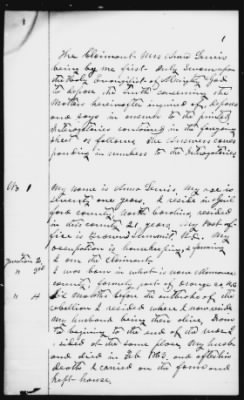 1
The Claimant Mrs
being by me first duly sworn upon
the Holy Evangelist of Almighty God
to depose the truth concerning the
Matters hereinafter inquired of, deposes
and says in answer to the printed
Interrogatories contained in the foregoing
sheet as follows the answers corres
ponding in numbers to the Interrogatories
1
My name is My age is
seventy one years, I reside in Guil
ford county North Carolina, resided
in this county 21 years my Post of-
fice is My
occupation is housekeeping & farming
I am the claimant
2nd
I was born in what is now Alamance
county, formerly part of Orange
" 4
Six Months before the outbreak of the
rebellion I resided where I now reside
my husband being then alive, From
the beginning to the end of the war I
resided at the same place, My husb
and died in Feb 1863, and after his
death I carried on the farm and
kept house.